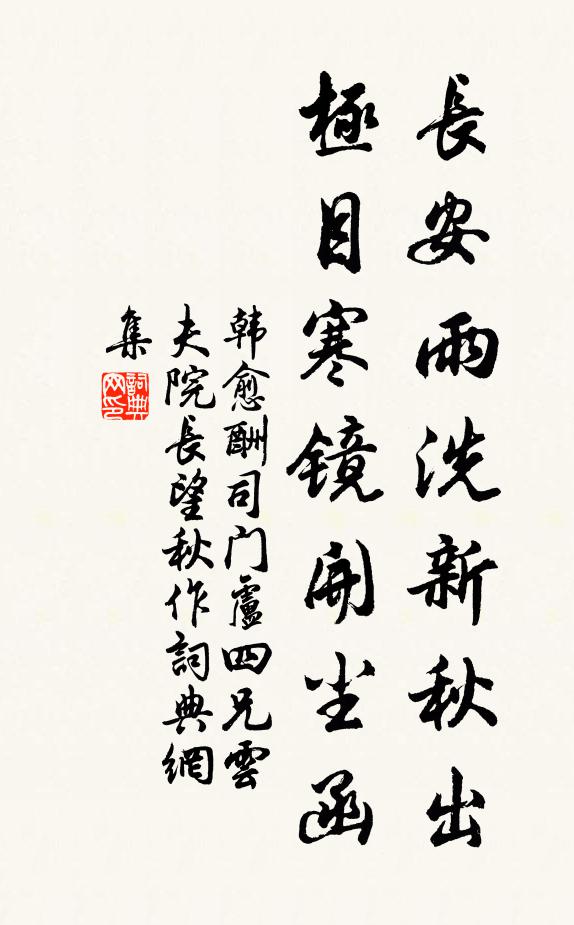 長安雨洗新秋出
極目寒镜開尘函
韩愈酬司门盧四兄雲
夫院長望秋作詞典網
集
詞典
网印